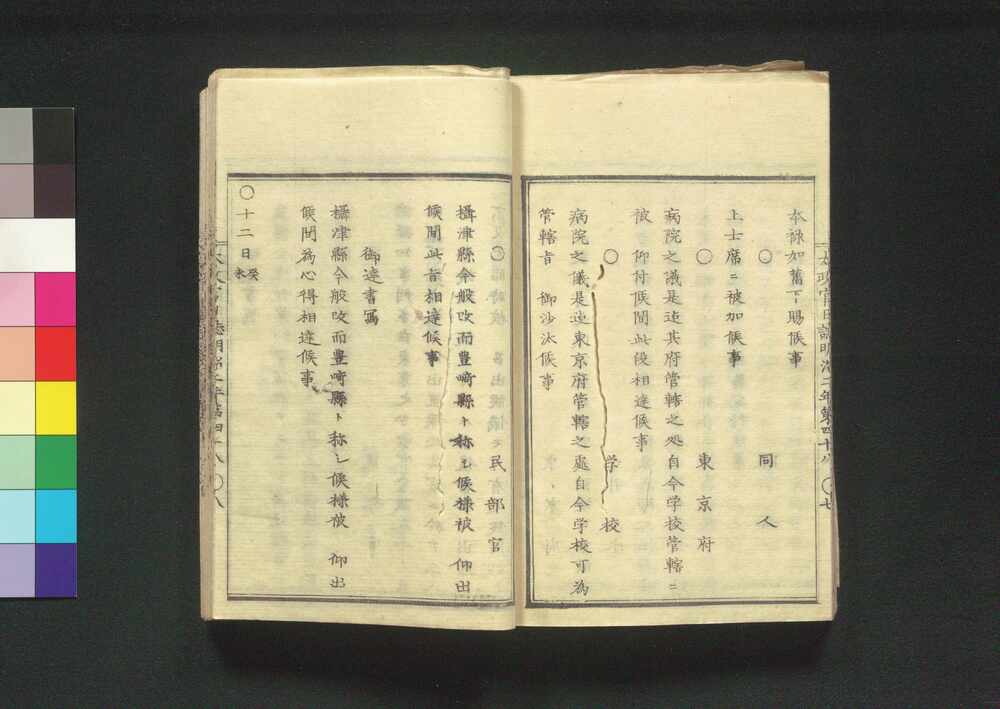 本禄如舊下賜候事
○ 同人
上士席ニ被加候事
○ 東京府
病院之儀是迄其府管轄之処自今学校管轄ニ
被 仰付候間此段相達候事
○ 学校
病院之儀是迄東京府管轄之處自今学校可為
管轄旨 御沙汰候事
太政官日誌明治二年第四十八 ○七
○ 民部官
攝津縣今般改而豊﨑縣ト称シ候様被 仰出
候間此旨相達候事
御達書寫
攝津縣今般改而豊﨑縣ト称シ候様被 仰出
候間為心得相達候事
○十二日癸未
太政官日誌明治二年第四十八 ○八